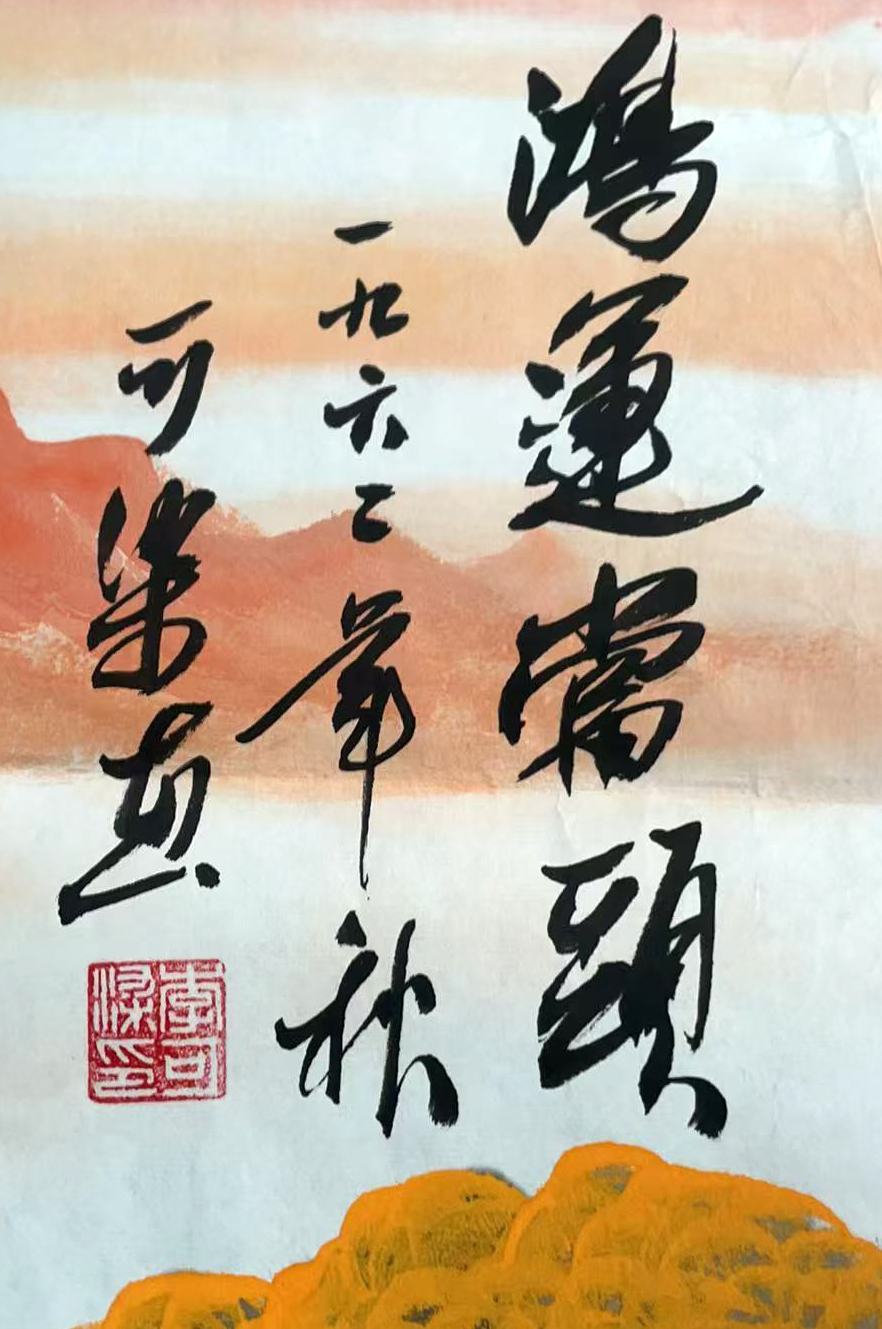 鴻運當頭
一九六二年秋
可染畫
李可染印